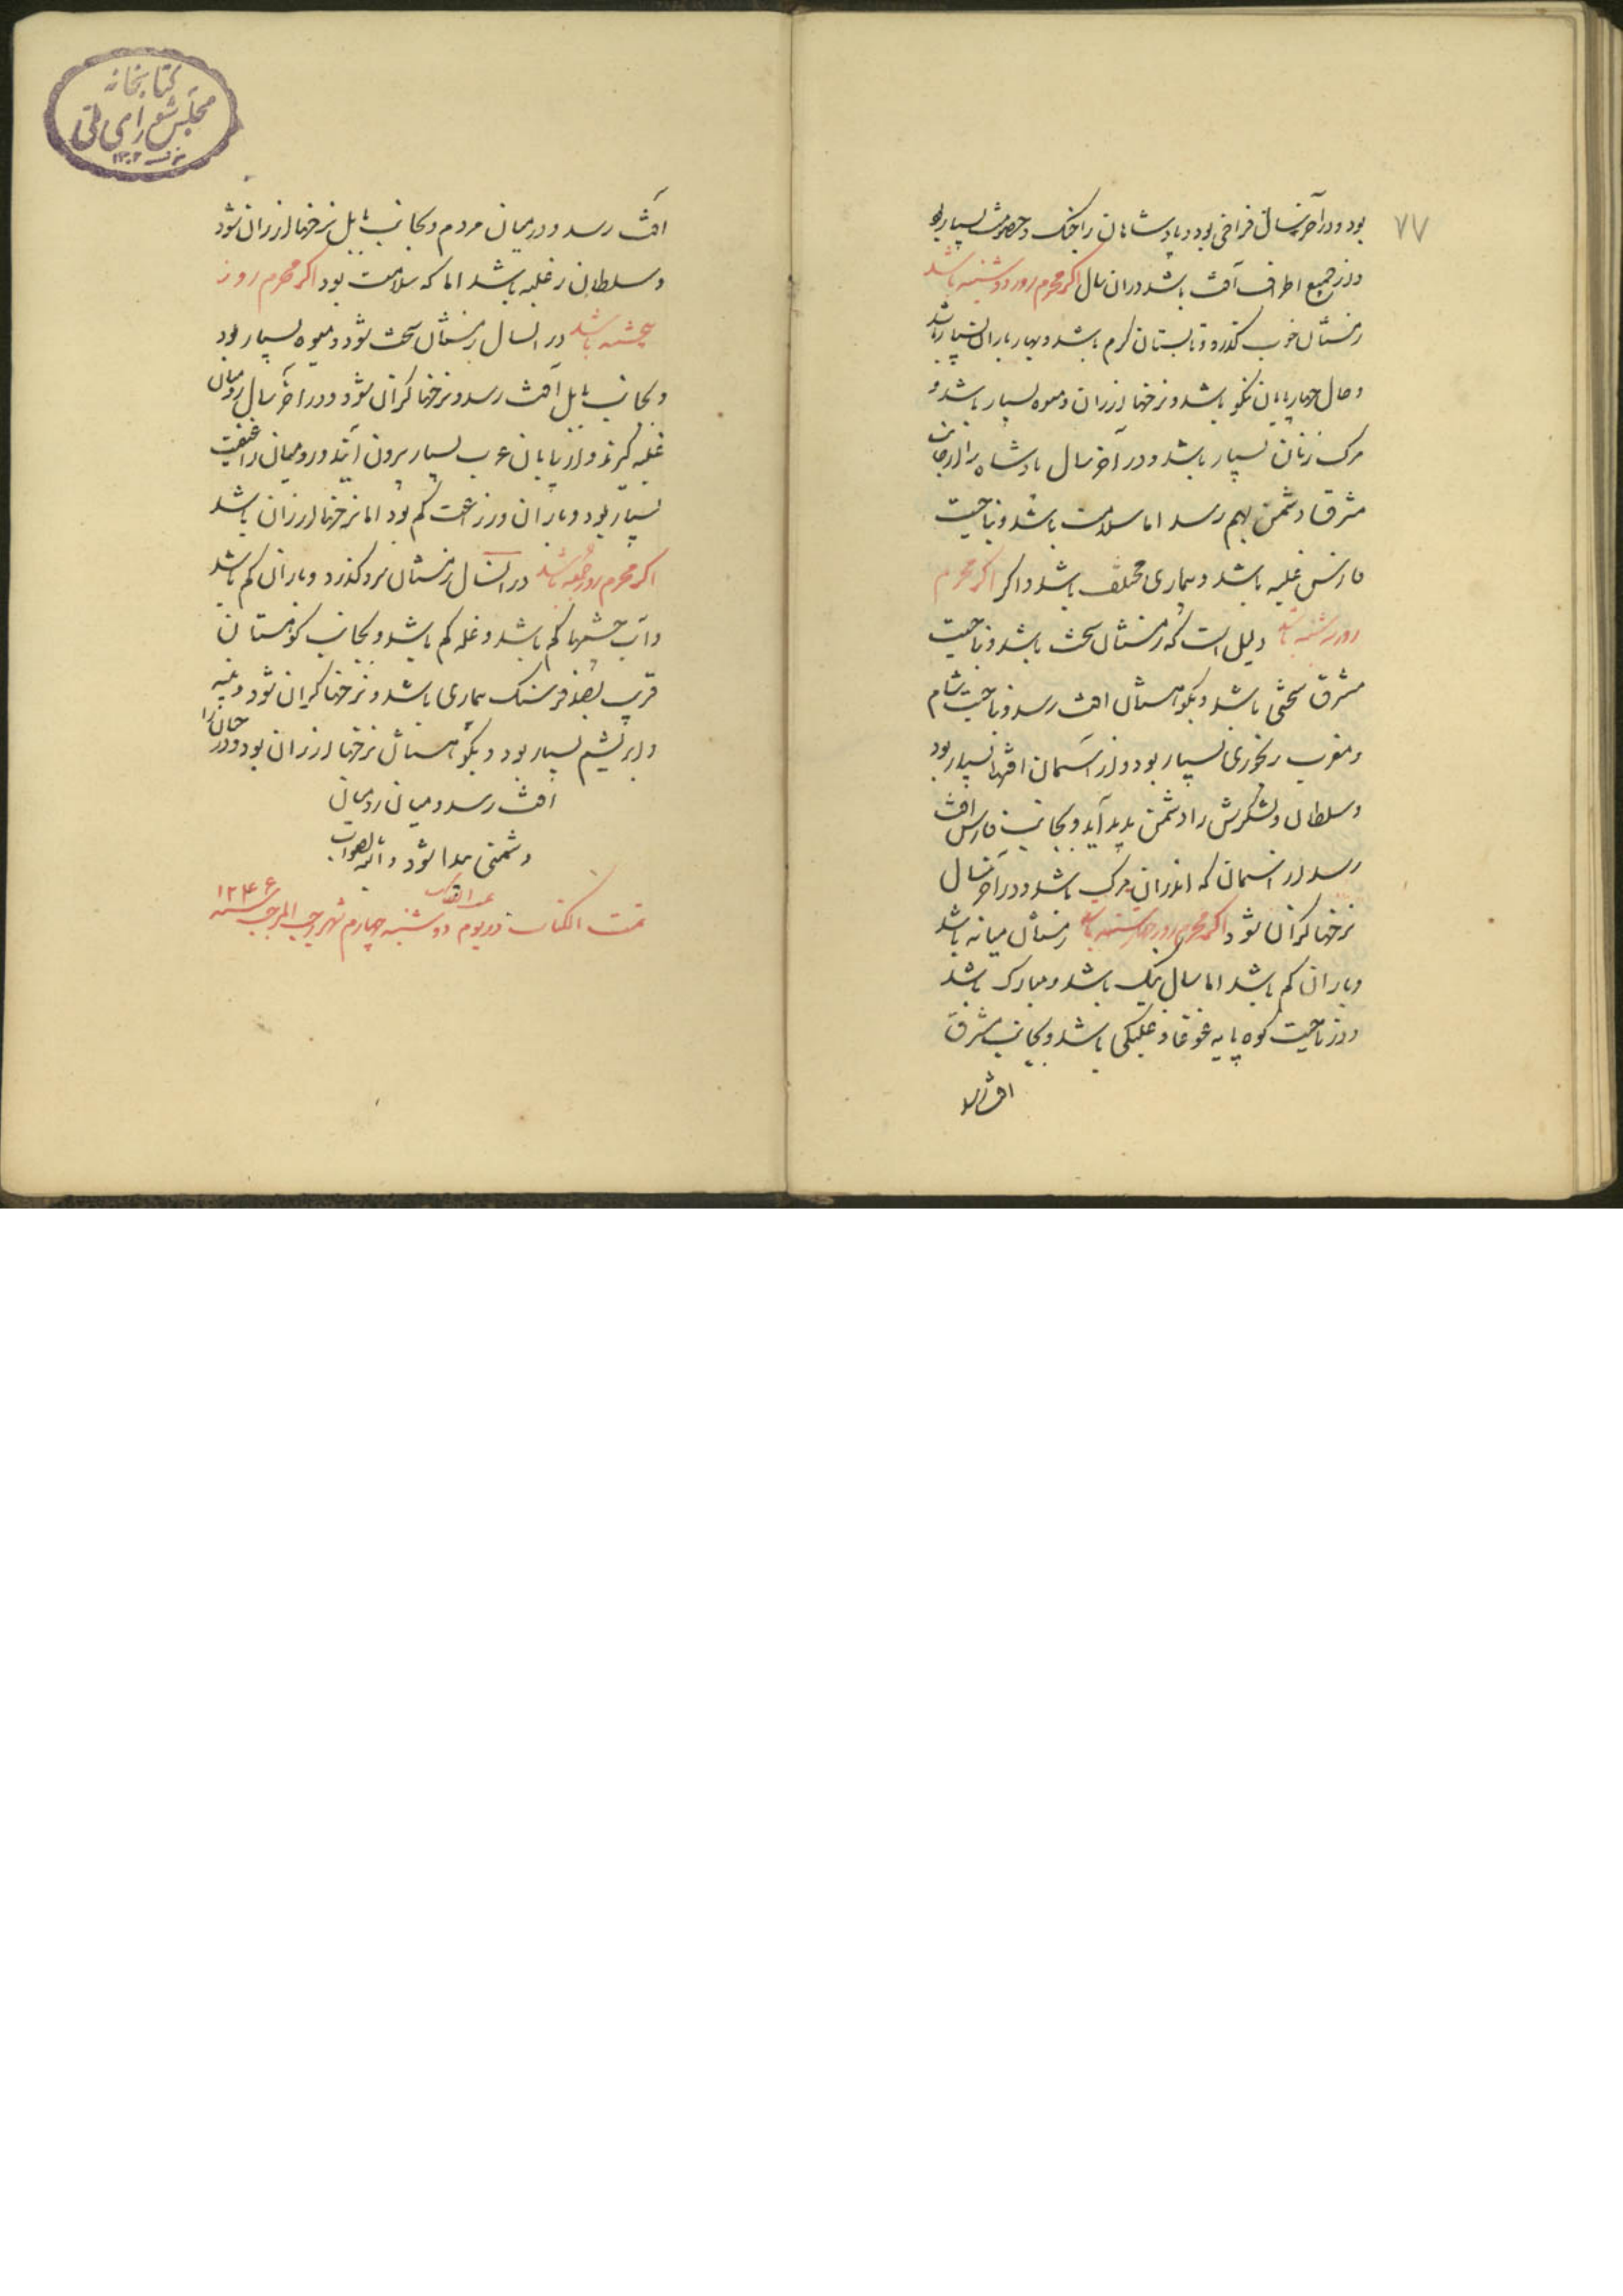 ۷۷
بود و در آخر سال فراخی بود و پادشاهان را جنک و خصومت بسیار بود
و از جمیع اطراف آفت باشد در ان سال اکر محرم روز دوشنبه باشد
زمستان خوب کذرد و تابستان کرم باشد و بهار باران بسیار باشد
و حال چهارپایان نکو باشد و نرخها ارزان و میوه بسیار باشد و
مرک زنان بسیار باشد و در آخر سال پادشاه را از جانب
مشرق دشمن بهم رسد اما سلامت باشد و بناحیت
فارس غلبه باشد و بیماری مختلف باشد و اکر اکر محرم
روز سه شنبه باشد دلیل است که زمستان سخت باشد و بناحیت
مشرق سختی باشد و بکوهستان افت رسد و بناحیت شام
و مغرب رنجوری بسیار بود و از آسمان افتها بسیار بود
و سلطان و لشکرش را دشمن پدید آید و بجانب فارس افت
رسد از اسمان که اندران مرک باشد و در آخر سال
نرخها کران شود و اکر محرم روز چهارشنبه باشد زمستان میانه باشد
و باران کم باشد اما سال نیک باشد و مبارک باشد
و در ناحیت کوه پایه غوغا و باشد و بجانب مشرق
افت رسد
کتابخانه
مجلس شورای ملی
آفت رسد و در میان مردم و بجانب بابل نرخها ارزان شود
و سلطان را غلبه باشد اما که سلامت بود اکر محرم روز
پنجشنبه باشد در انسال زمستان سخت شود و میوه بسیار بود
و بجانب بابل آفت رسد و نرخها کران شود و در آخر سال رومیان
غلبه کیرند و از بیابان عرب بسیار برون آیند و رومیان را غنیمت
بسیار بود و باران و زراعت کم بود اما نرخها ارزان باشد
اکر محرم روز جمعه باشد در انسال زمستان سرد کذرد و باران کم باشد
و آب چشمها کم باشد و غله کم باشد و بجانب کوهستان
قریب بصد فرسنک بیماری باشد و نرخها کران شود و پنبه
و ابریشم بسیار بود و بکوهستان نرخها ارزان بود و در
افت رسد و میان رومیان
دشمنی پیدا شود و الله بالصواب
تمت الکتاب در یوم دوشنبه چهارم شهر رجب المرجب سنه ۱۲۴۶